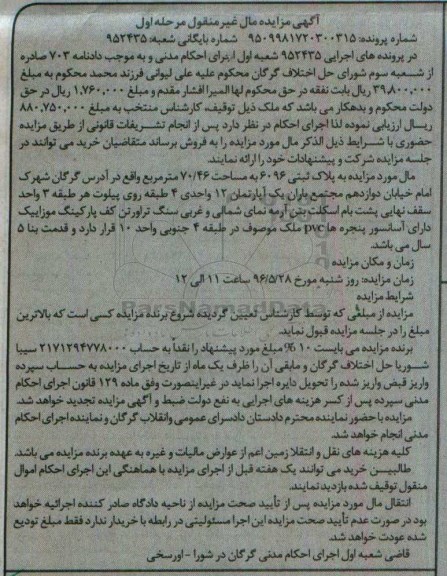 آگهی مزایده مال غیر منقول مرحله اول
شماره پرونده: ۹۵۰۹۹۸۱۷۲۰۳۰۰۳۱۵ شماره بایگانی شعبه: ۹۵۲۴۳۵
در پرونده های اجرایی ۹۵۲۴۳۵ شعبه اول اجرای احکام مدنی و به موجب دادنامه ۷۰۳ صادره
از شعبه سوم شورای حل اختلاف گرگان محکوم علیه علی لیوانی فرزند محمد محکوم به مبلغ
۳۹.۸۰۰.۰۰۰ ریال بابت نفقه در حق محکوم لها المیرا افشار مقدم و مبلغ ۱.۷۶۰.۰۰۰ ریال در حق
دولت محکوم و بدهکار می باشد که ملک ذیل توقیف، کارشناس منتخب به مبلغ ۸۸۰.۷۵۰.۰۰۰
ریال ارزیابی نموده لذا اجرای احکام در نظر دارد پس از انجام تشریفات قانونی از طریق مزایده
حضوری با شرایط ذیل الذکر مال مورد مزایده را به فروش برساند متقاضیان خرید می توانند در
جلسه مزایده شرکت و پیشنهادات خود را ارائه نمایند.
مال مورد مزایده به پلاک ثبتی ۶۰۹۶ به مساحت ۷۰/۴۶ مترمربع واقع در آدرس گرگان شهرک
امام خیابان دوازدهم مجتمع باران یک آپارتمان ۱۲ واحدی ۴ طبقه روی پیلوت هر طبقه ۳ واحد
سقف نهایی پشت بام اسکلت بتن آرمه نمای شمالی و غربی سنگ تراورتن کف پارکینگ موزاییک
دارای آسانسور پنجره ها pvc ملک موصوف در طبقه ۴ جنوبی واحد ۱۰ قرار دارد و قدمت بنا ۵
سال می باشد.
زمان و مکان مزایده
زمان مزایده: روز شنبه مورخ ۹۶/۵/۲۸ ساعت ۱۱ الی ۱۲
شرایط مزایده
مزایده از مبلغی که توسط کارشناس تعیین گردیده شروع برنده مزایده کسی است که بالاترین
مبلغ را در جلسه مزایده قبول نماید.
برنده مزایده می بایست ۱۰% مبلغ مورد پیشنهاد را نقداً به حساب ۲۱۷۱۲۹۴۷۷۸۰۰۰ سیبا
شورا حل اختلاف گرگان و مابقی آن را ظرف یک ماه از تاریخ اجرای مزایده به حساب سپرده
واریز قبض واریز شده را تحویل دایره اجرا نماید در غیر اینصورت وفق ماده ۱۲۹ قانون اجرای احکام
مدنی سپرده پس از کسر هزینه های اجرایی به نفع دولت ضبط و آگهی مزایده تجدید خواهد شد.
مزایده با حضور نماینده محترم دادستان دادسرای عمومی وانقلاب گرگان و نماینده اجرای احکام
مدنی انجام خواهد شد.
کلیه هزینه های نقل و انتقال زمین اعم از عوارض مالیات و غیره به عهده برنده مزایده می باشد.
طالبین خرید می توانند یک هفته قبل از اجرای مزایده با هماهنگی این اجرای احکام اموال
منقول توقیف شده بازدید نمایند.
انتقال مال مورد مزایده پس از تأیید صحت مزایده از ناحیه دادگاه صادر کننده اجرائیه خواهد
بود در صورت عدم تأیید صحت مزایده این اجرا مسئولیتی در رابطه با خریدار ندارد فقط مبلغ تودیع
شده عودت خواهد شد.
قاضی شعبه اول اجرای احکام مدنی گرگان در شورا - اورسخی
ParsNamadData